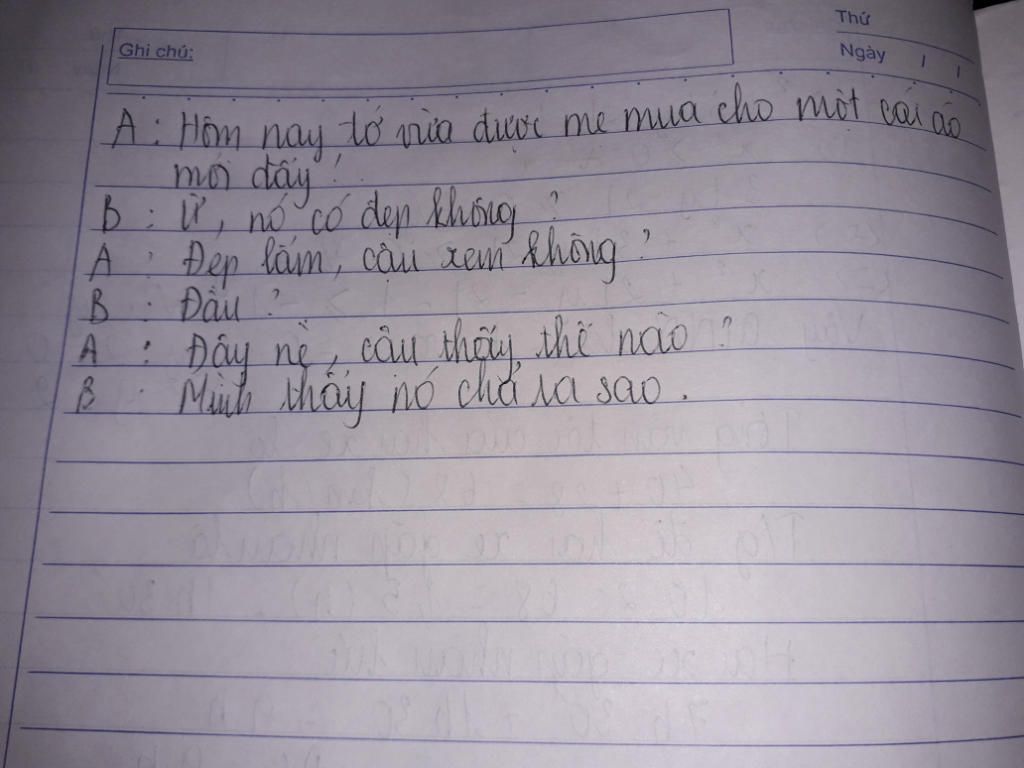 Thứ
Ghi chú:
Ngày / /
A : Hôm nay tớ vừa được mẹ mua cho một cái áo
mới đấy !
B : Ừ, nó có đẹp không ?
A : Đẹp lắm, cậu xem không ?
B : Đâu ?
A : Đây nè, cậu thấy thế nào ?
B : Mình thấy nó chả ra sao.